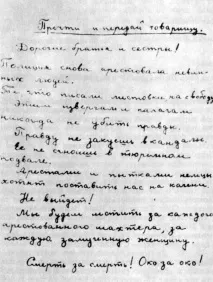 Прочти и передай товарищу.
Дорогие братья и сестры!
Полиция снова арестовала невин-
ных людей.
Те что писали листовки на свободе
Этим извергам и палачам
никогда не убить правды.
Правду не закуешь в кандалы.
Ее не сгноишь в тюремном
подвале.
Арестами и пытками немцы
хотят поставить нас на колени.
Не выйдет!
Мы будем мстить за каждого
арестованного шахтера, за
каждую замученную женщину.
Смерть за смерть! Око за око!